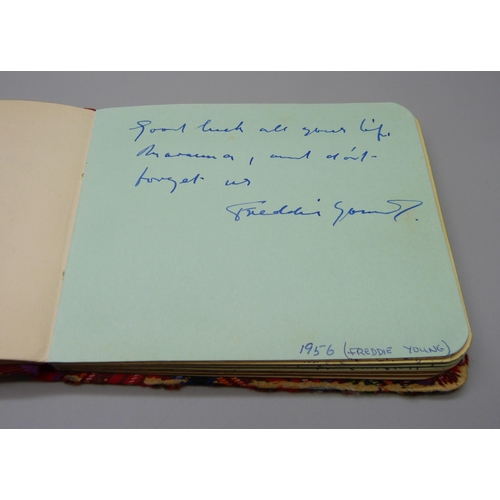 Good luck all your life,
and don't
forget us
Freddie Young.
1956 (FREDDIE YOUNG)